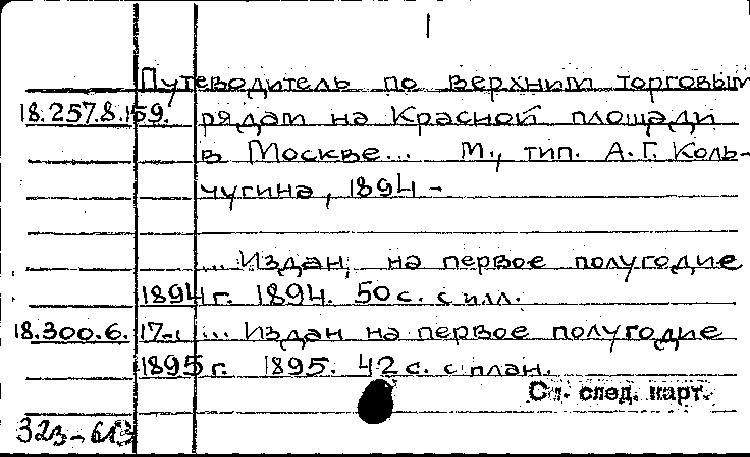 1
Путеводитель по верхним торговым
18.257.8.159. рядам на Красной площади
в Москве... М., тип. А.Г. Коль-
чугина, 1894 -
... Издан на первое полугодие
1894 г. 1894. 50 с. с илл.
18.300.6. 17- ... Издан на первое полугодие
1895 г. 1895. 42 с. с план.
См. след. карт.
323-613